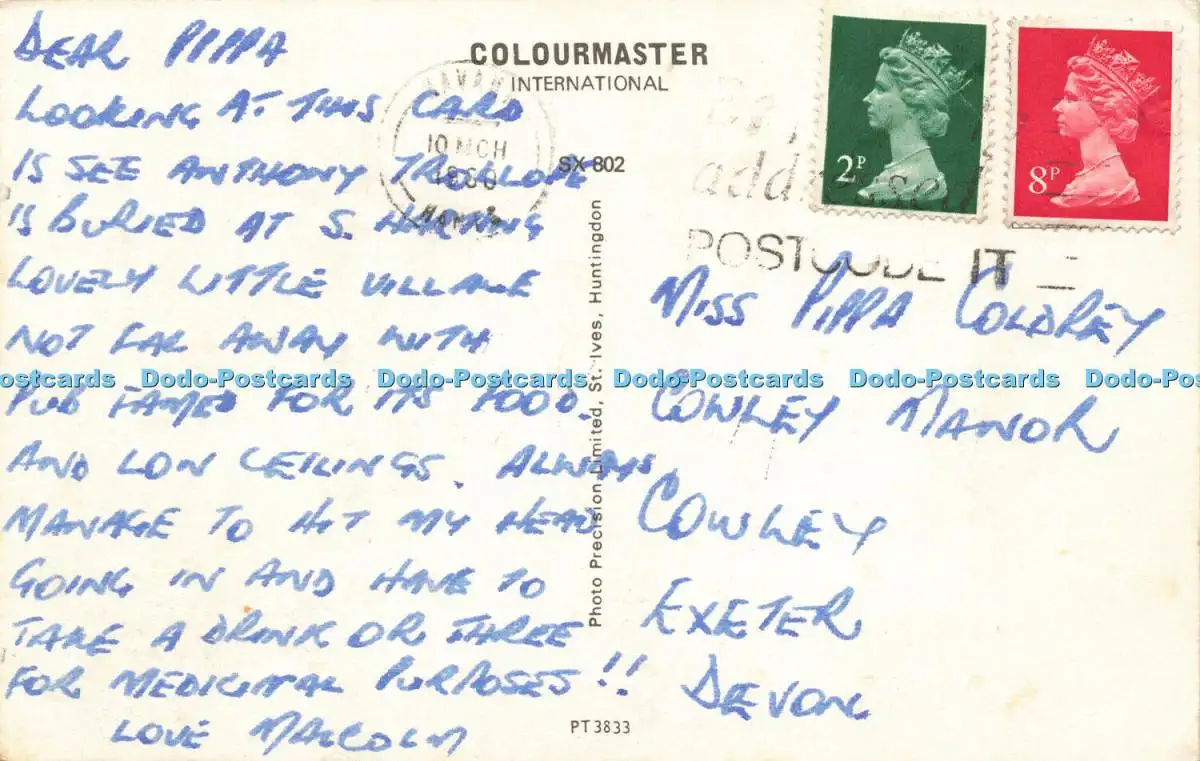 DEAR PIPPA
LOOKING AT THIS CARD
IS SEE ANTHONY TROLLOPE
IS BURIED AT S. HARTING
LOVELY LITTLE VILLAGE
NOT FAR AWAY WITH
PUB FAMED FOR ITS FOOD.
AND LOW CEILINGS. ALWAYS
MANAGE TO HIT MY HEAD
GOING IN AND HAVE TO
TAKE A DRINK OR THREE
FOR MEDICINAL PURPOSES!!
LOVE MALCOLM
COLOURMASTER
INTERNATIONAL
SX 802
10 MCH
1980
Photo Precision Limited, St. Ives, Huntingdon
PT3833
2P
8P
POSTCODE IT
MISS PIPPA COLDREY
COWLEY MANOR
COWLEY
EXETER
DEVON
Dodo-Postcards Dodo-Postcards Dodo-Postcards Dodo-Postcards Dodo-Postcards